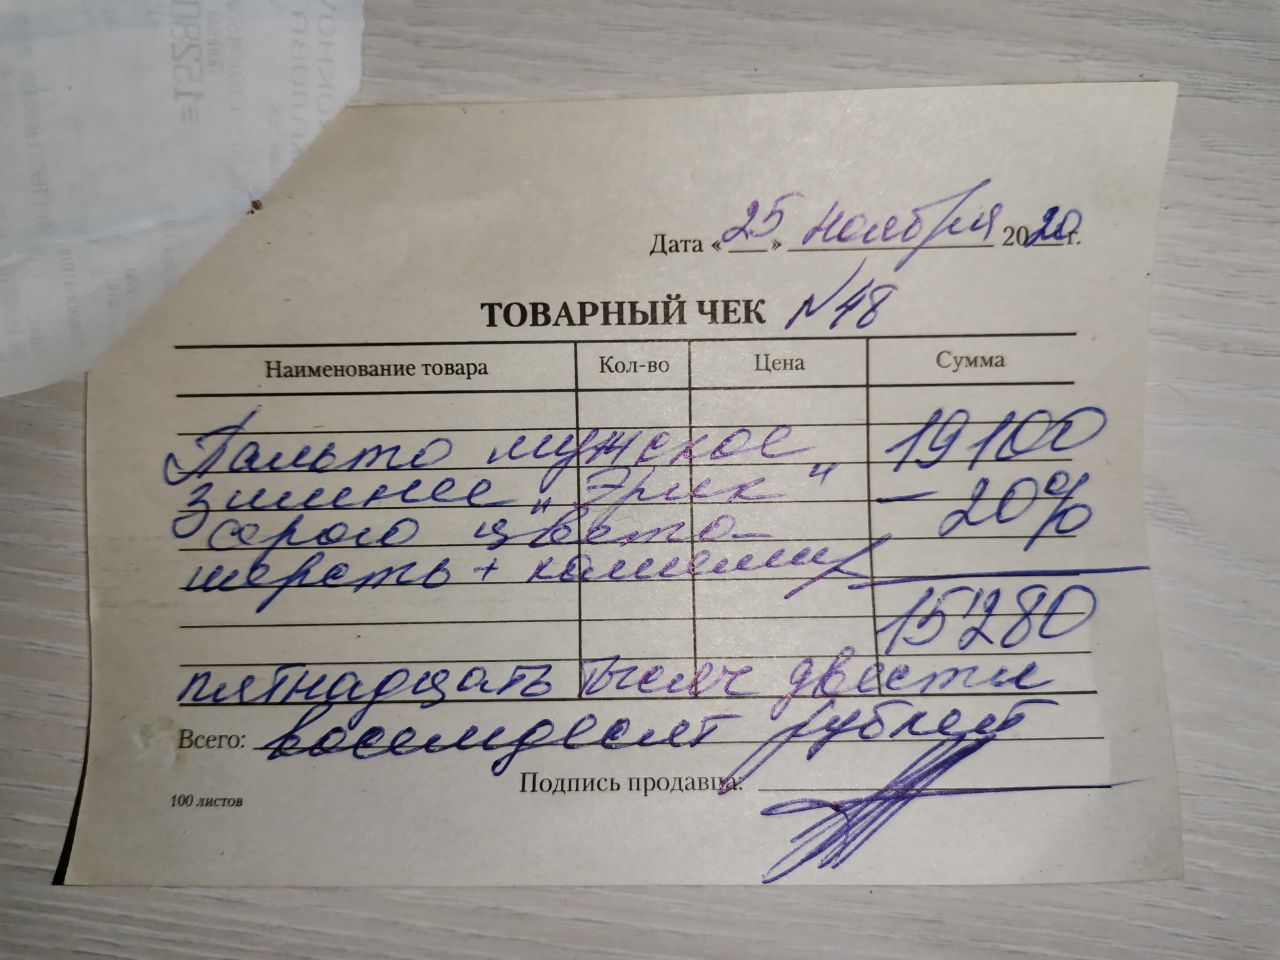 =1528
Дата «25» ноября 2020 г.
ТОВАРНЫЙ ЧЕК N48
Наименование товара Кол-во Цена Сумма
Пальто мужское 19100
зимнее "Эрик" - 20%
серого цвета
шерсть + кашемир
15280
пятнадцать тысяч двести
Всего: восемдесят рублей
Подпись продавца:
100 листов